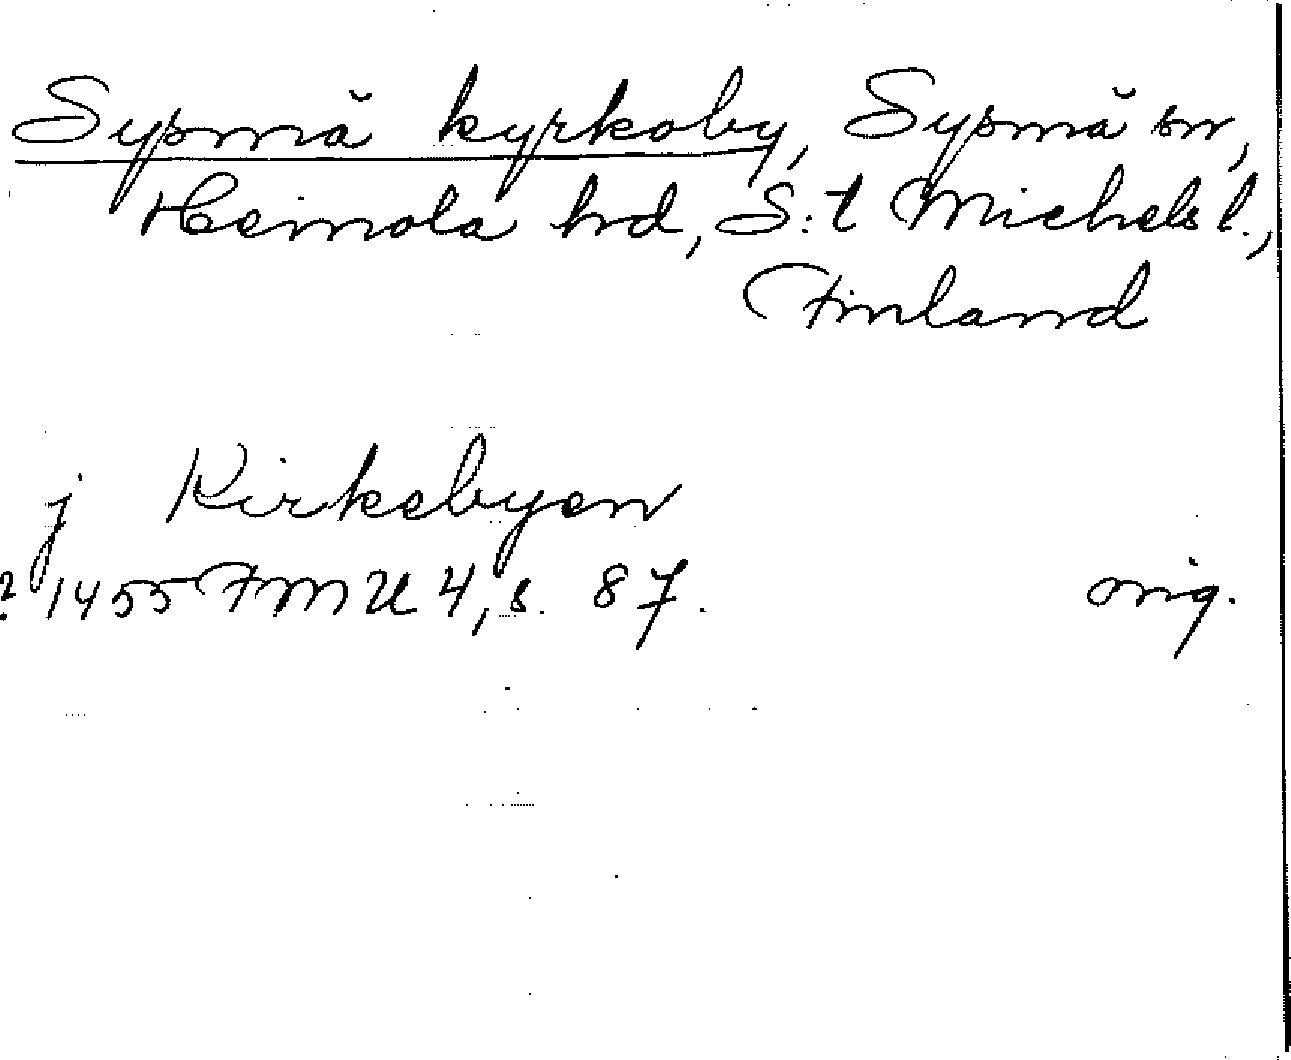 Sysmä kyrkoby, Sysmä sn,
Heinola hd, S:t Michels l.,
Finland
j Kirkebyen
? 1455 FMU 4, s. 87. orig.